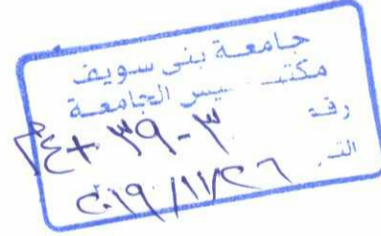 جامعة بنى سويف
مكتب يس الجامعة
رقم ٣-٣٩+٣٤
الت ٢٠١٩/١١/٢٦